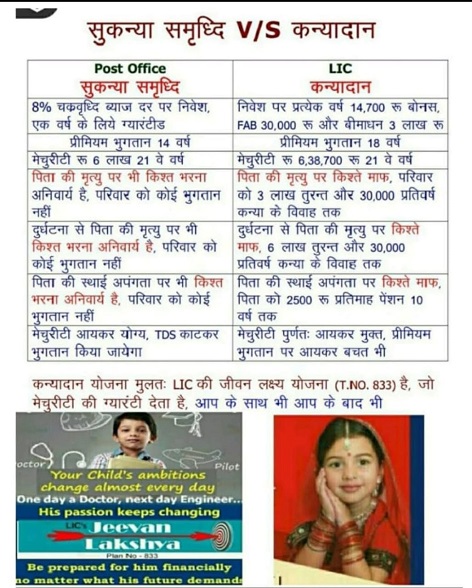 सुकन्या समृध्दि V/S कन्यादान
Post Office
सुकन्या समृध्दि
LIC
कन्यादान
8% चक्रवृध्दि ब्याज दर पर निवेश,
एक वर्ष के लिये ग्यारंटीड
निवेश पर प्रत्येक वर्ष 14,700 रू बोनस,
FAB 30,000 रू और बीमाधन 3 लाख रू
प्रीमियम भुगतान 14 वर्ष
प्रीमियम भुगतान 18 वर्ष
मेचुरीटी रू 6 लाख 21 वे वर्ष
मेचुरीटी रू 6,38,700 रू 21 वे वर्ष
पिता की मृत्यु पर भी किश्त भरना
अनिवार्य है, परिवार को कोई भुगतान
नहीं
पिता की मृत्यु पर किश्ते माफ, परिवार
को 3 लाख तुरन्त और 30,000 प्रतिवर्ष
कन्या के विवाह तक
दुर्घटना से पिता की मृत्यु पर भी
किश्त भरना अनिवार्य है, परिवार को
कोई भुगतान नहीं
दुर्घटना से पिता की मृत्यु पर किश्ते
माफ, 6 लाख तुरन्त और 30,000
प्रतिवर्ष कन्या के विवाह तक
पिता की स्थाई अपंगता पर भी किश्त
भरना अनिवार्य है, परिवार को कोई
भुगतान नहीं
पिता की स्थाई अपंगता पर किश्ते माफ,
पिता को 2500 रू प्रतिमाह पेंशन 10
वर्ष तक
मेचुरीटी आयकर योग्य, TDS काटकर
भुगतान किया जायेगा
मेचुरीटी पुर्णतः आयकर मुक्त, प्रीमियम
भुगतान पर आयकर बचत भी
कन्यादान योजना मुलतः LIC की जीवन लक्ष्य योजना (T.NO. 833) है, जो
मेचुरीटी की ग्यारंटी देता है, आप के साथ भी आप के बाद भी
octor
Pilot
Your Child's ambitions
change almost every day
One day a Doctor, next day Engineer..
His passion keeps changing
LIC's Jeevan
Lakshya
Plan No - 833
Be prepared for him financially
no matter what his future demands